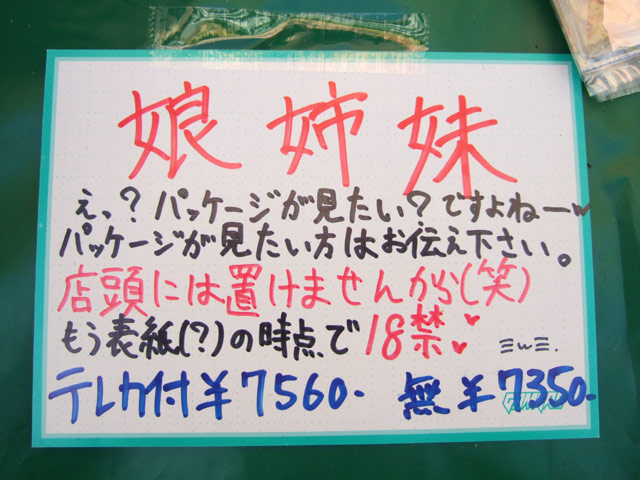 娘姉妹
えっ?パッケージが見たい?ですよねーw
パッケージが見たい方はお伝え下さい。
店頭には置けませんから(笑)
もう表紙(?)の時点で18禁♥ ミw三.
テレカ付¥7560- 無¥7350-